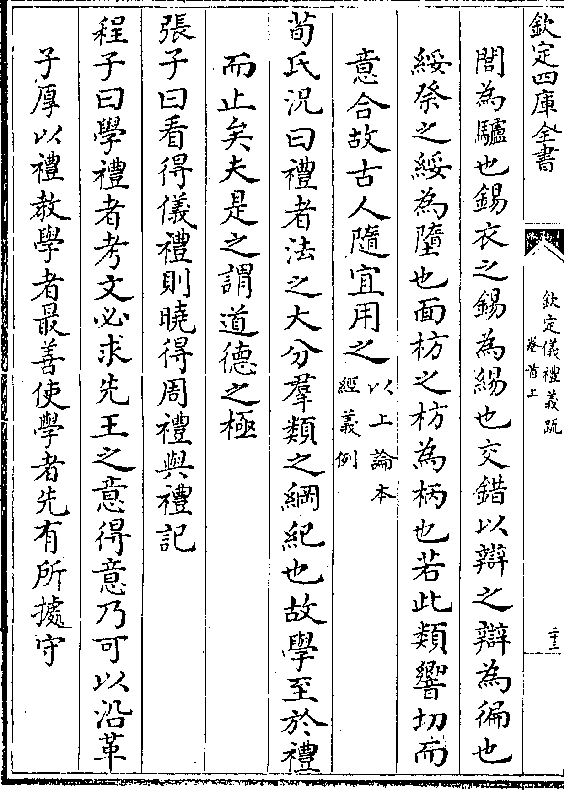 欽定四庫全書
欽定儀禮義疏
卷首上
二十三
閭為驢也錫衣之錫為緆也交錯以辯之辯為徧也
綏祭之綏為墮也面枋之枋為柄也若此類響切而
意合故古人隨宜用之以上論本
經義例
荀氏況曰禮者法之大分羣類之綱紀也故學至於禮
而止矣夫是之謂道德之極
張子曰看得儀禮則曉得周禮與禮記
程子曰學禮者考文必求先王之意得意乃可以沿革
子厚以禮教學者最善使學者先有所據守